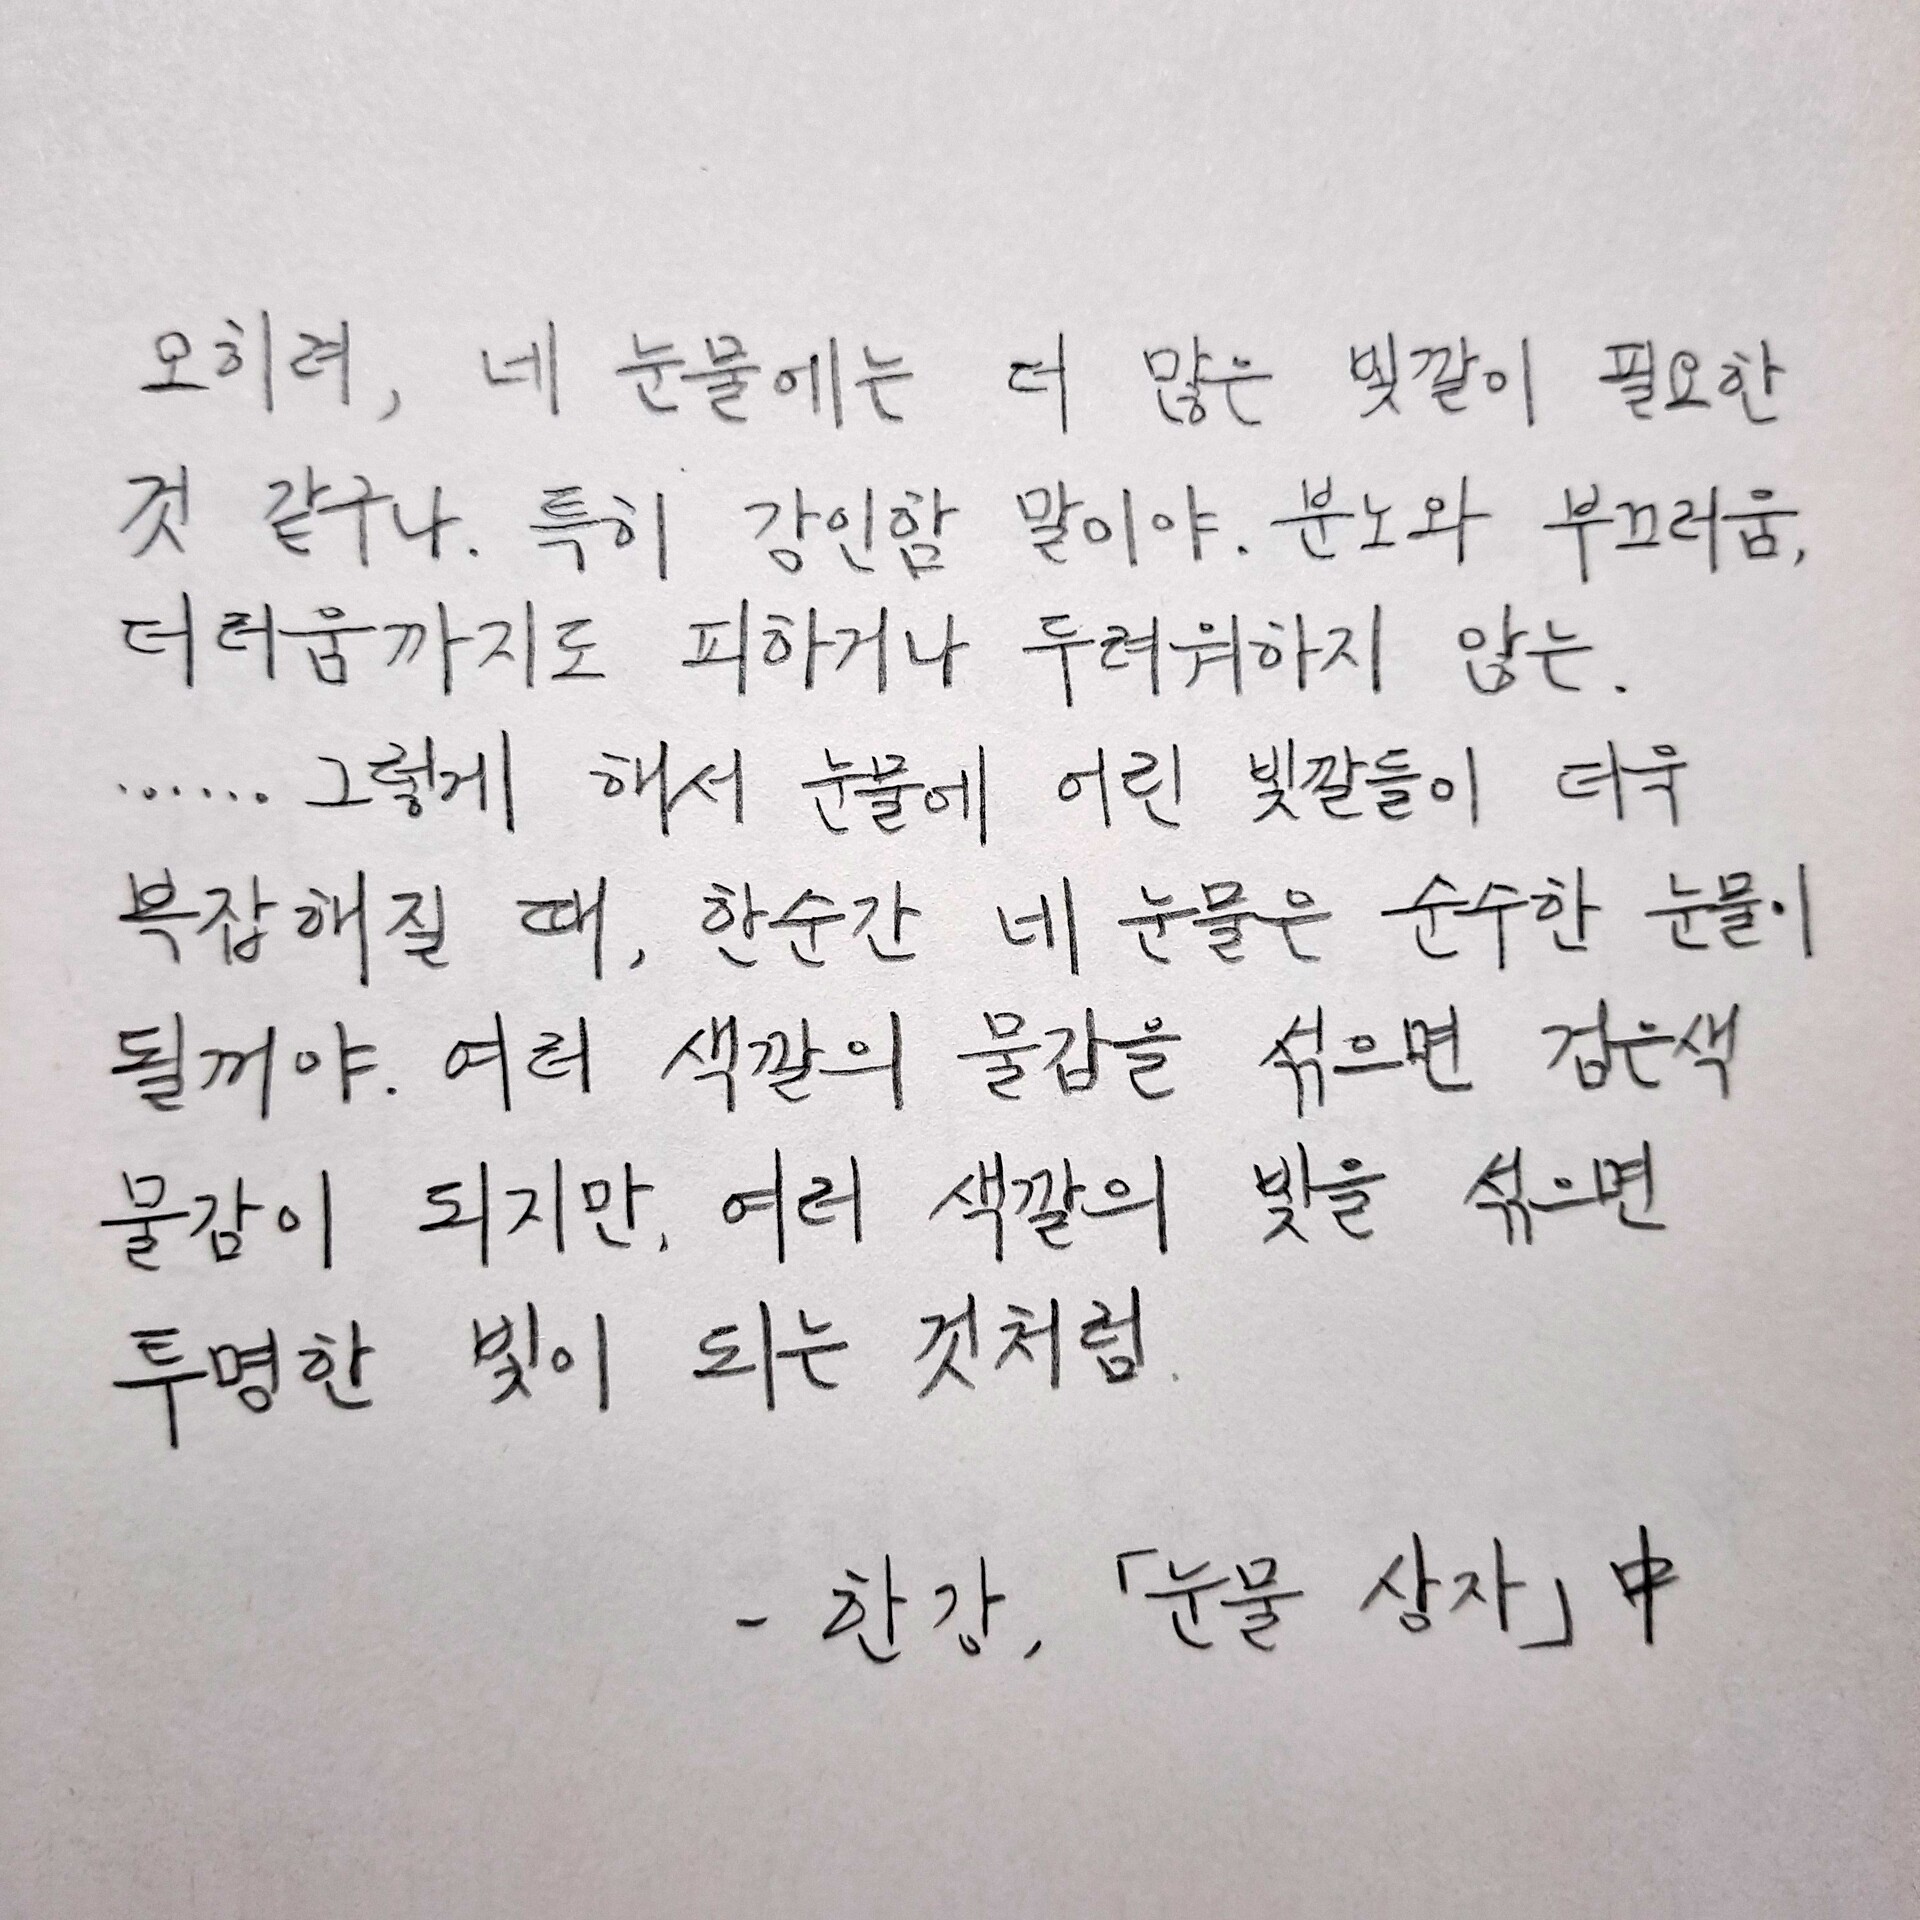 오히려, 네 눈물에는 더 많은 빛깔이 필요한
것 같구나. 특히 강인함 말이야. 분노와 부끄러움,
더러움까지도 피하거나 두려워하지 않는.
......그렇게 해서 눈물에 어린 빛깔들이 더욱
복잡해질 때, 한순간 네 눈물은 순수한 눈물이
될꺼야. 여러 색깔의 물감을 섞으면 검은색
물감이 되지만, 여러 색깔의 빛을 섞으면
투명한 빛이 되는 것처럼.
- 한강, 「눈물 상자」 中